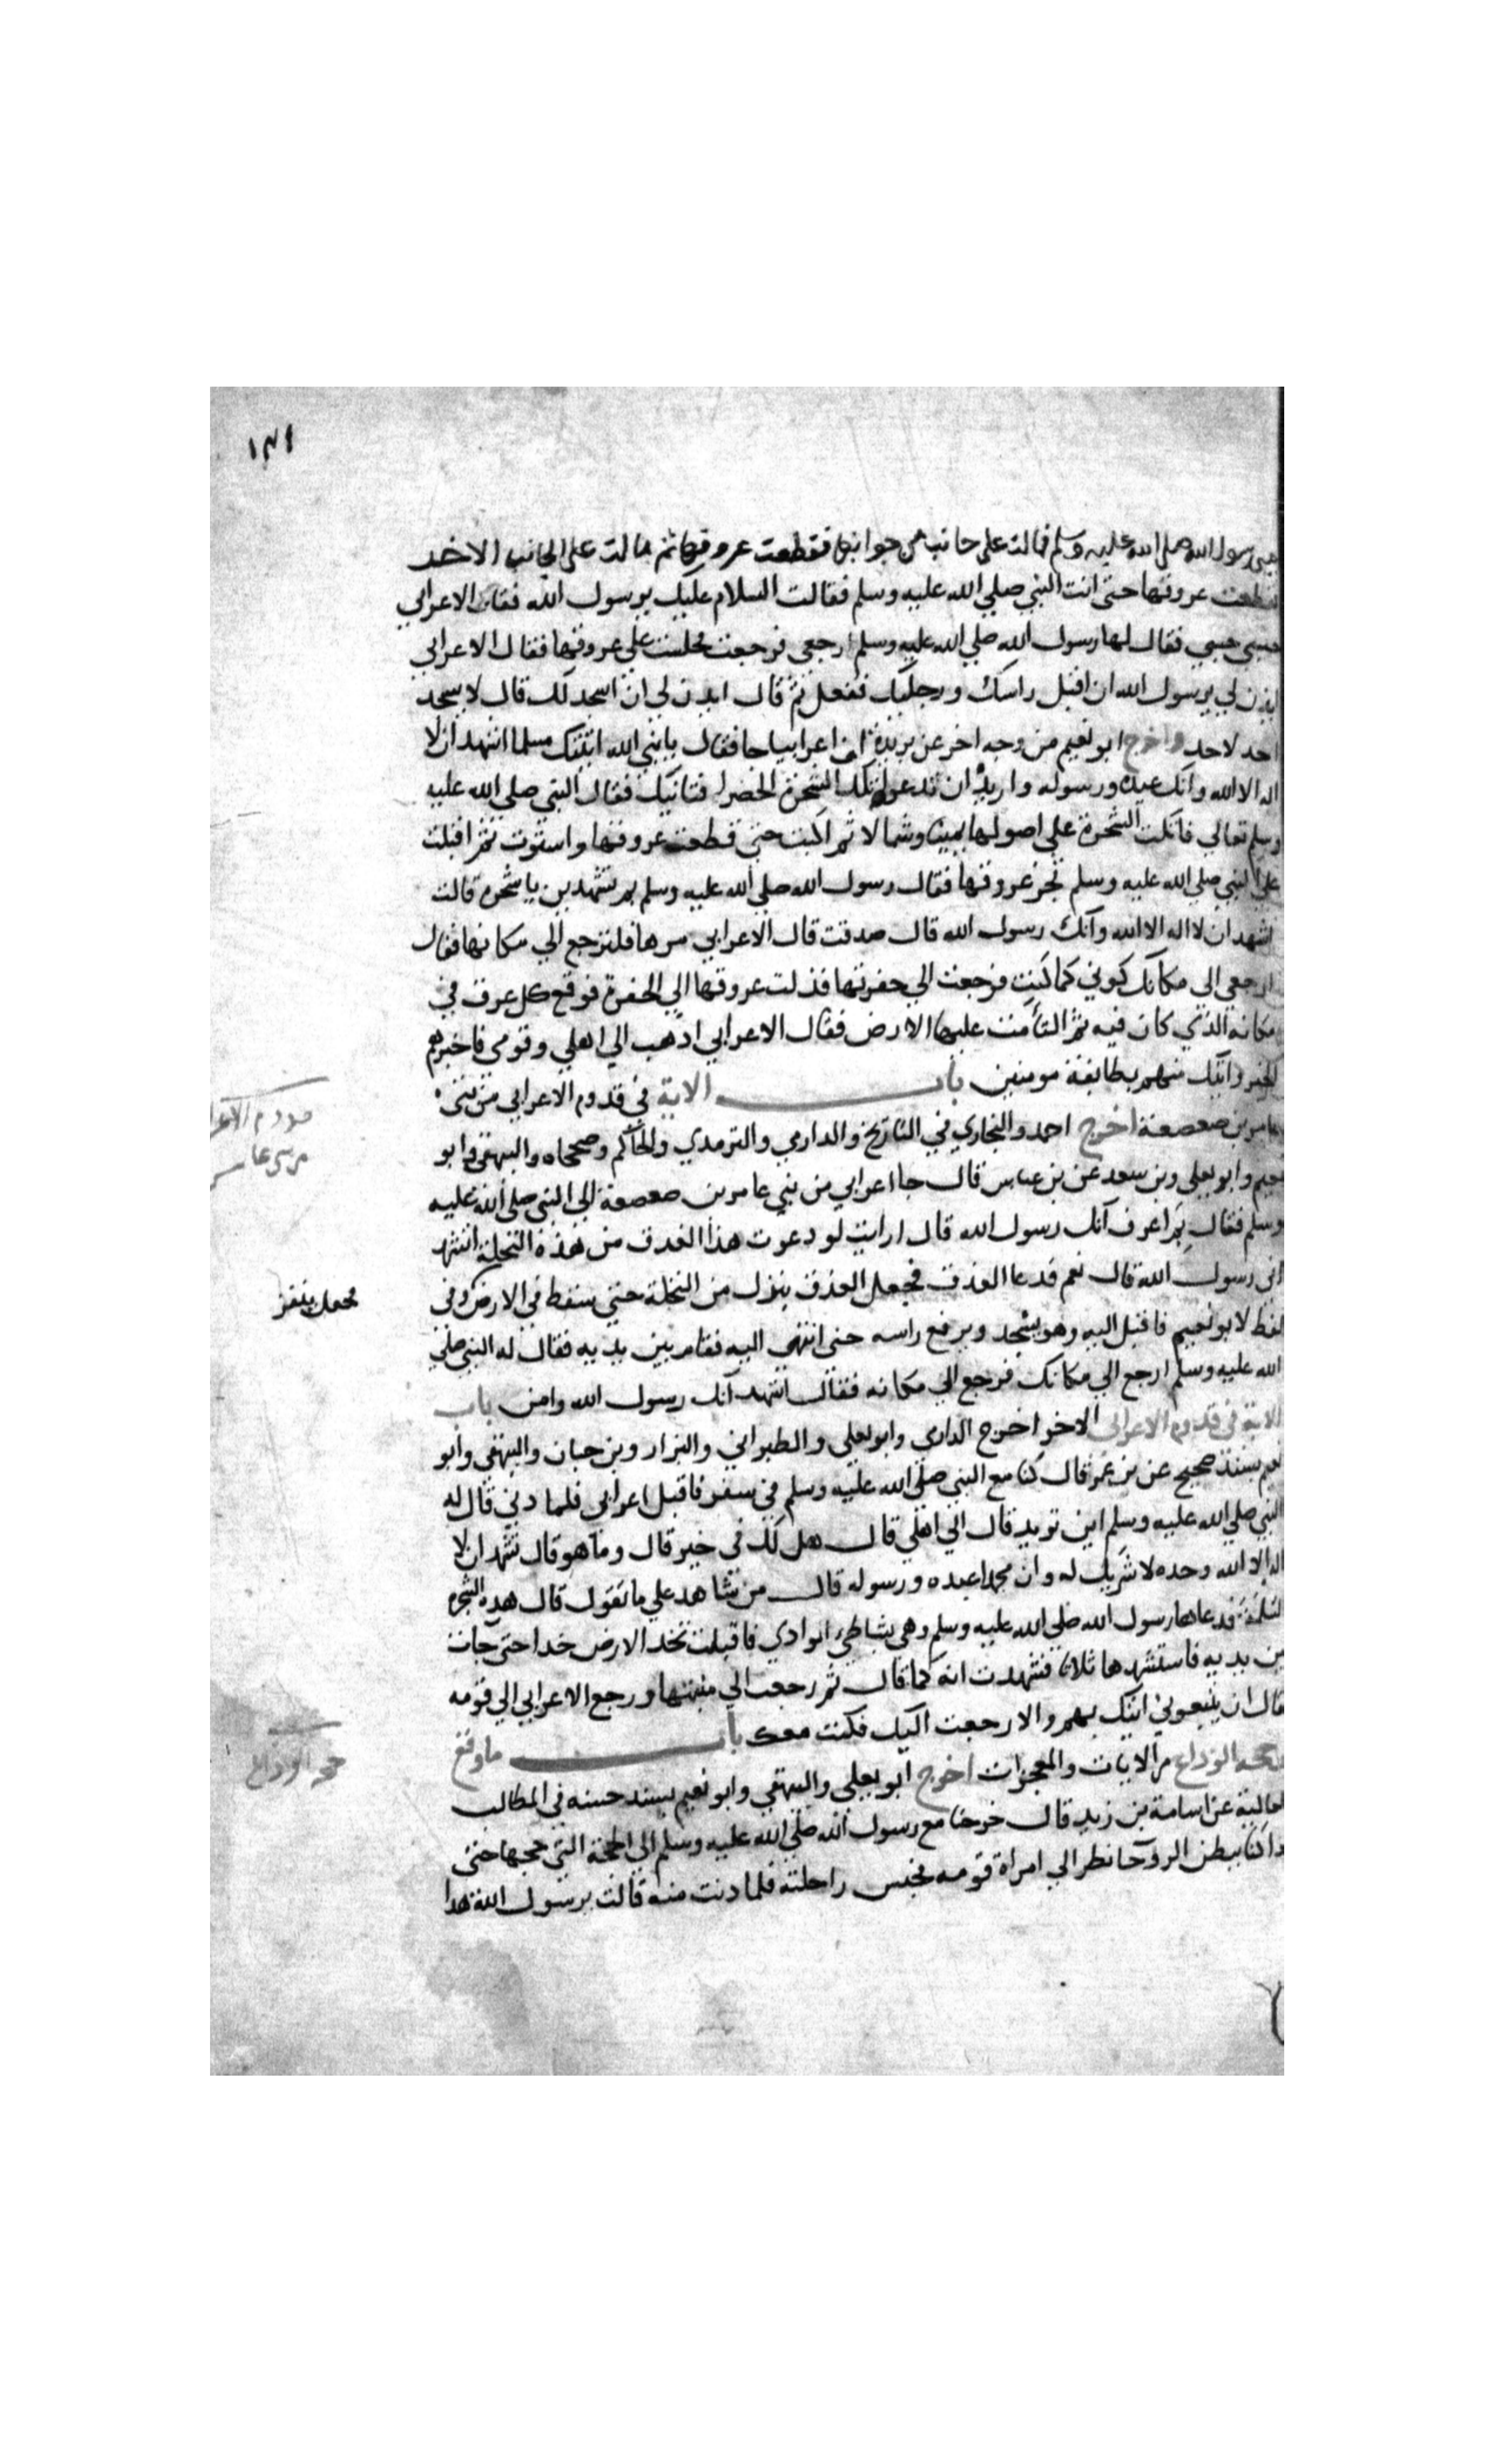 ١٣١
رسول الله صلى الله عليه وسلم فمالت على جانب من جوانبها فقطعت عروقها ثم مالت على الجانب الاخر
فقطعت عروقها حتى اتت النبي صلي الله عليه وسلم فقالت السلام عليك يرسول الله فقال الاعرابي
حسبي حسبي فقال لها رسول الله صلي الله عليه وسلم ارجعي فرجعت فجلست علي عروقها فقال الاعرابي
ايذن لي يرسول الله ان اقبل راسك ورجليك ففعل ثم قال ايذن لي ان اسجد لك قال لا يسجد
احد لاحد واخرج ابو نعيم من وجه اخر عن بريدة ان اعرابيا جا فقال يا نبي الله اتيتك مسلما اشهد ان لا
اله الا الله وانك عبده ورسوله واريد ان تدعو تلك الشجرة الخضرا فتاتيك فقال النبي صلي الله عليه
وسلم تعالي فاتكت الشجرة علي اصولها يمينا وشمالا ثم اكبت حتى قطعت عروقها واستوت ثم اقبلت
علي النبي صلي الله عليه وسلم تجر عروقها فقال رسول الله صلي الله عليه وسلم بم تشهدين يا شجرة قالت
اشهد ان لا اله الا الله وانك رسول الله قال صدقت قال الاعرابي مرها فلترجع الي مكانها فقال
ارجعي الى مكانك كوني كما كنت فرجعت الي حفرتها فدلت عروقها الي الحفرة فوقع كل عرق في
مكانه الذي كان فيه ثم التأمت عليها الارض فقال الاعرابي اذهب الي اهلي وقومي فاخبرهم
الخبر واتيك منهم بطايفة مومنين باب الاية في قدوم الاعرابي من بني
عامر بن صعصعة اخرج احمد والبخاري في التاريخ والدارمي والترمذي والحاكم وصححاه والبيهقي وابو
نعيم وابو يعلى وبن سعد عن بن عباس قال جا اعرابي من بني عامر بن صعصعة الي النبي صلى الله عليه
وسلم فقال بم اعرف انك رسول الله قال ارايت لو دعوت هذا العذق من هذه النخلة اتشهد
اني رسول الله قال نعم فدعا العذق فجعل العذق ينزل من النخلة حتي سقط في الارض وفي
لفظ لابو نعيم فاقبل اليه وهو يسجد ويرفع راسه حتى انتهى اليه فقام بين يديه فقال له النبي صلي
الله عليه وسلم ارجع الي مكانك فرجع الي مكانه فقال اشهد انك رسول الله وامن باب
الاية في قدوم الاعرابي الاخر اخرج الدارمي وابو يعلي والطبراني والبزار وبن حبان والبيهقي وابو
نعيم بسند صحيح عن بن عمر قال كنا مع النبي صلى الله عليه وسلم في سفر فاقبل اعرابي فلما دني قال له
النبي صلي الله عليه وسلم اين تريد قال الي اهلي قال هل لك في خير قال وما هو قال تشهد ان لا
اله الا الله وحده لا شريك له وان محمدا عبده ورسوله قال من شاهد علي ما تقول قال هذه الشجرة
السلمة فدعاها رسول الله صلي الله عليه وسلم وهي بشاطئ الوادي فاقبلت تخد الارض خدا حتى جات
بين يديه فاستشهدها ثلاثا فشهدت انه كما قال ثم رجعت الي منبتها ورجع الاعرابي الي قومه
فقال ان يتبعوني اتيتك بهم والا رجعت اليك فكنت معك باب ما وقع
حجة الوداع من الايات والمعجزات اخرج ابو يعلي والبيهقي وابو نعيم بسند حسنه في المطالب
العالية عن اسامة بن زيد قال خرجنا مع رسول الله صلي الله عليه وسلم الى الحجة التي حجها حتى
اذا كنا ببطن الروحا نظر الي امراة قومه فحبس راحلته فلما دنت منه قالت يرسول الله هذا
قدوم الاعرا
فجعل ينقز
حجة الوداع